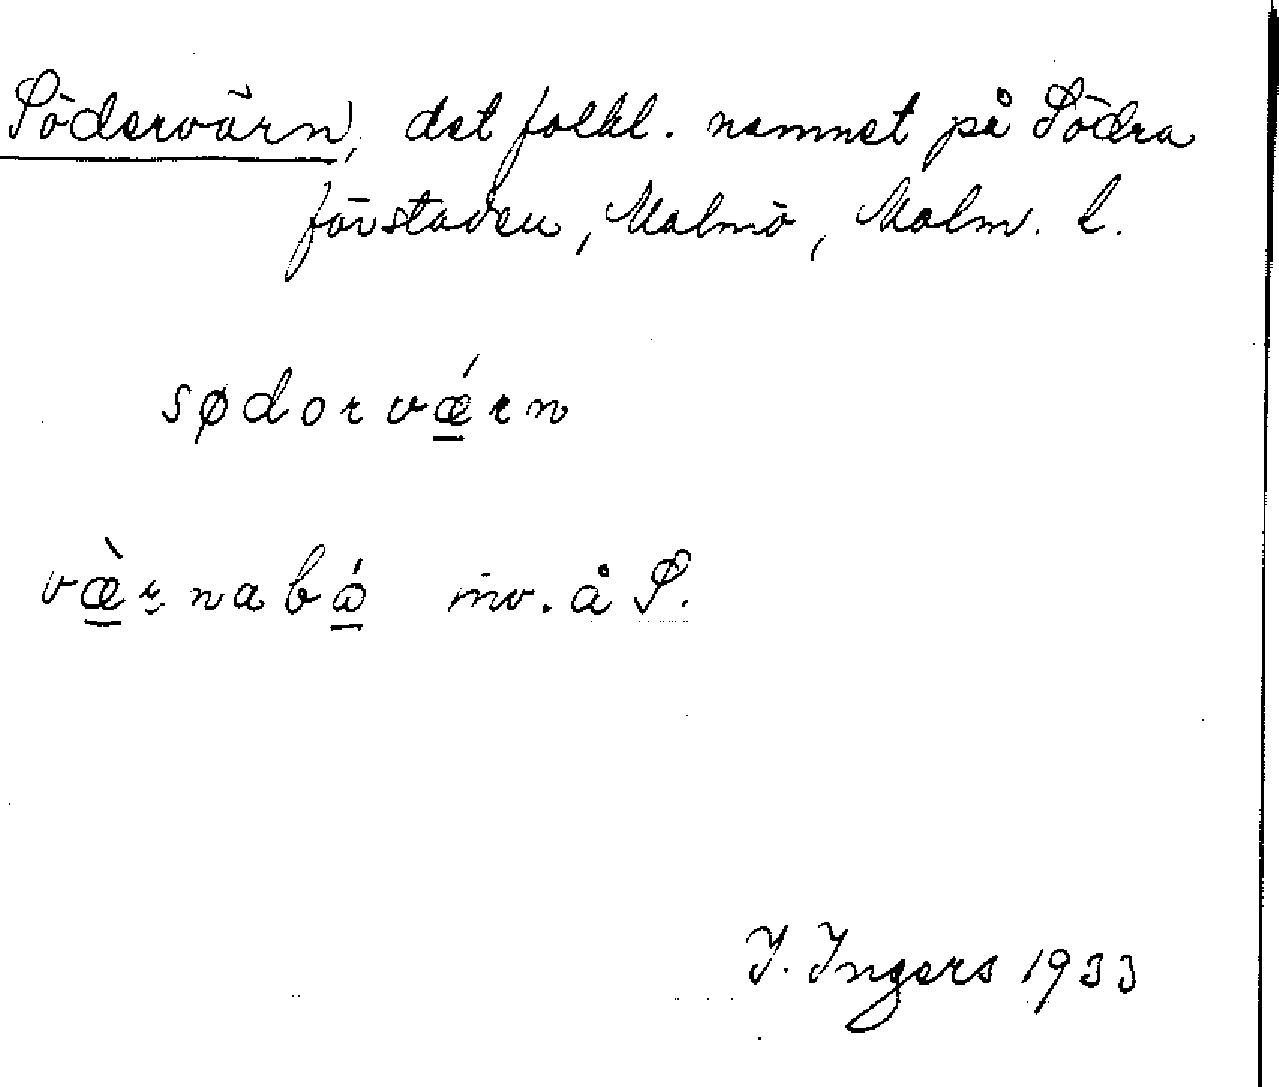 Södervärn, det folkl. namnet på Södra
förstaden, Malmö, Malm. l.
sødorvǽrn
væ̀rnabó inv. å S.
I. Ingers 1933